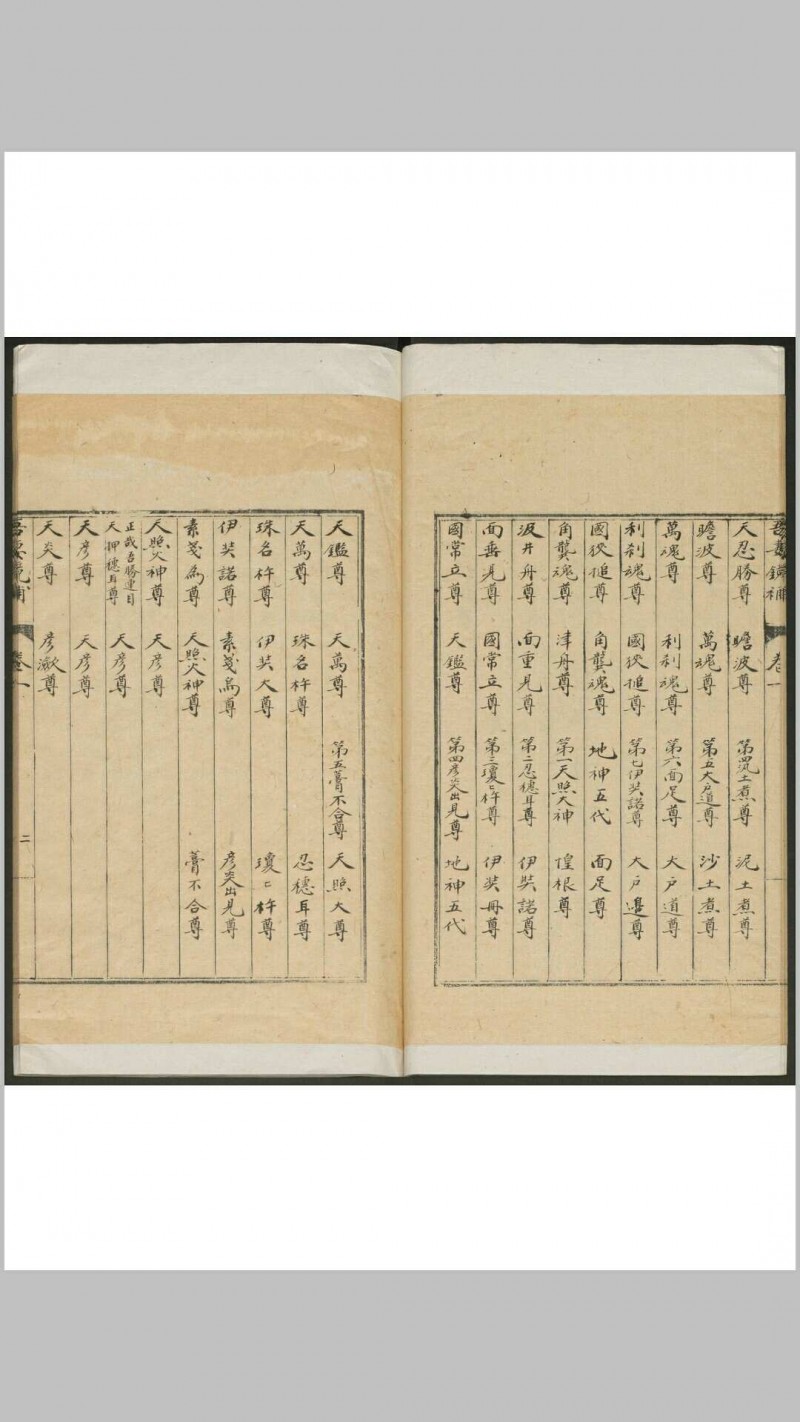 吾妻鏡補 卷一
天忍勝尊 瞻波尊 第四泥土煮尊 泥土煮尊
瞻波尊 萬魂尊 第五大戸道尊 沙土煮尊
萬魂尊 利刹魂尊 第六面足尊 大戸道尊
利刹魂尊 國狹槌尊 第七伊奘諾尊 大戸邉尊
國狹槌尊 角龔魂尊 地神五代 面足尊
角龔魂尊 津丹尊 第一天照大神 惶根尊
汲丹舟尊 面重見尊 第二忍穗耳尊 伊奘諾尊
面垂見尊 國常立尊 第三瓊〻杵尊 伊奘冊尊
國常立尊 天鑑尊 第四彥炎出見尊 地神五代
天鑑尊 天萬尊 第五膏不合尊 天照大尊
天萬尊 珠名杵尊 忍穗耳尊
珠名杵尊 伊奘大尊 瓊〻杵尊
伊奘諾尊 素戔烏尊 彥炎出見尊
素戔烏尊 天照火神尊 膏不合尊
天照火神尊 天彥尊
正哉吾勝速日天押穗耳尊 天彥尊
天彥尊 天彥尊
天炎尊 彥瀲尊
吾妻鏡補 卷一 二